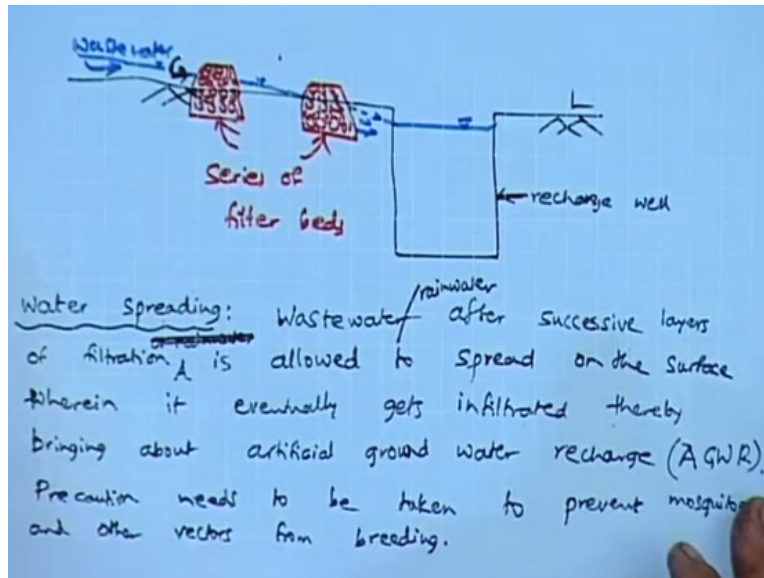 Wastewater
Series of
filter beds
recharge well
Water Spreading: Wastewater/rainwater after successive layers
of filtration is allowed to spread on the surface
wherein it eventually gets infiltrated thereby
bringing about artificial ground water recharge (AGWR).
Precaution needs to be taken to prevent mosquitoes
and other vectors from breeding.